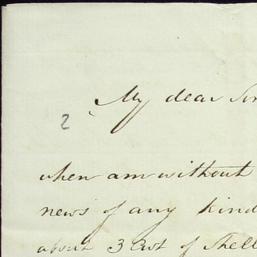 My dear Sir
2
when am without
news of any kind
about 3 Cwt of Shell